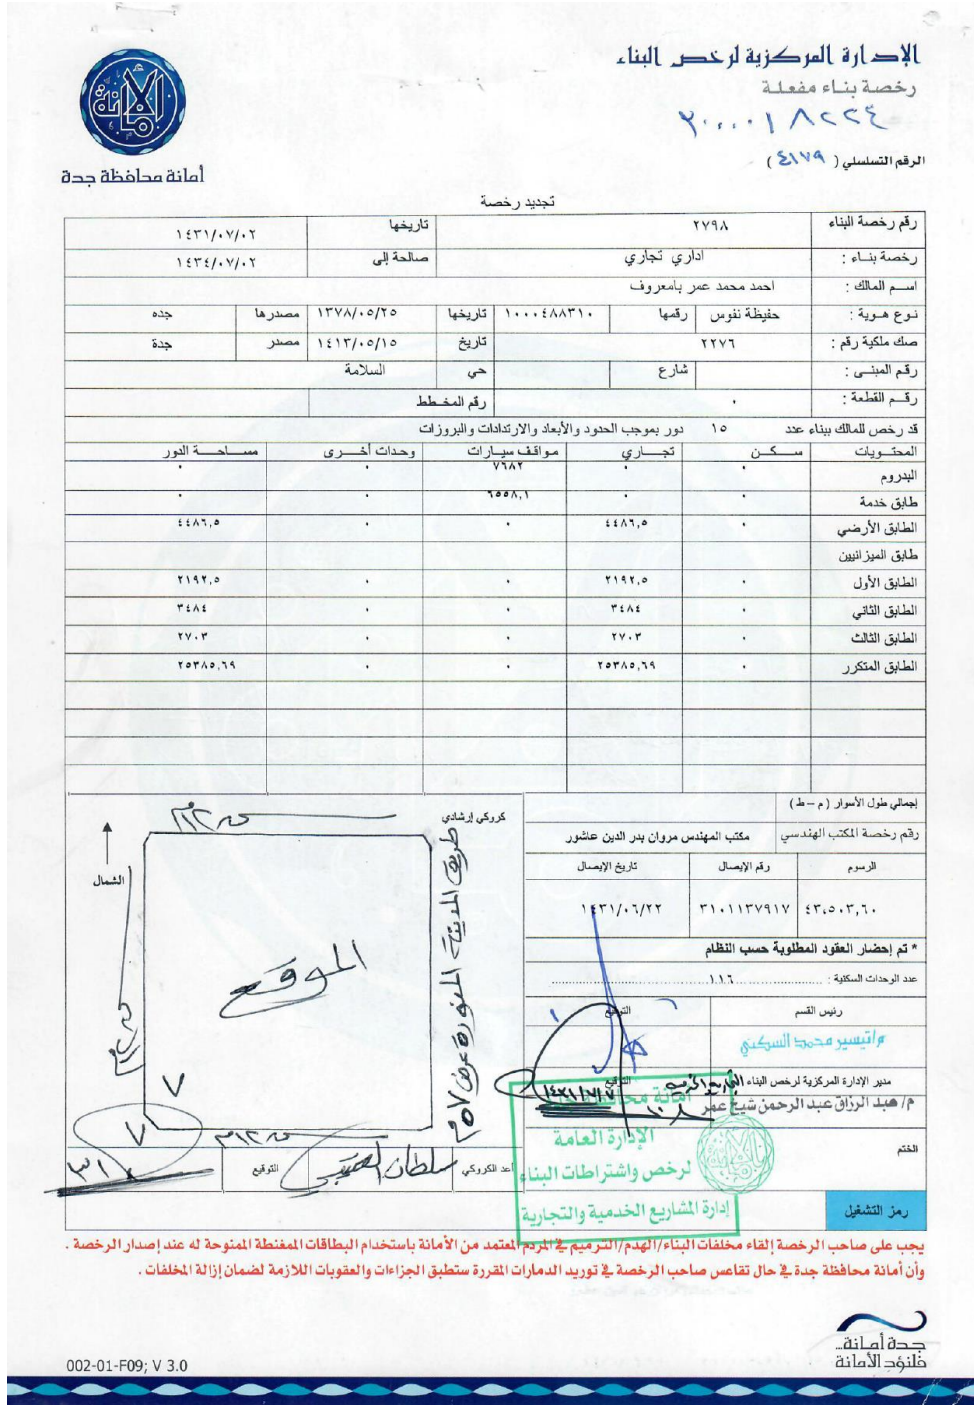 الإدارة المركزية لرخص البناء
رخصة بناء مفعلة
٣٠٠٠٠١٨٢٢٤
الرقم التسلسلي ( ٤١٧٩ )
أمانة محافظة جدة
تجديد رخصة
رقم رخصة البناء ٢٧٩٨ تاريخها ١٤٣١/٠٧/٠٢
رخصة بناء : اداري تجاري صالحة إلى ١٤٣٤/٠٧/٠٢
اسم المالك : احمد محمد عمر بامعروف
نوع هوية : حفيظة نفوس رقمها ١٠٠٠٤٨٨٣١٠ تاريخها ١٣٧٨/٠٥/٢٥ مصدرها جده
صك ملكية رقم : ٢٢٧٦ تاريخ ١٤١٣/٠٥/١٥ مصدر جدة
رقم المبنى : شارع حي السلامة
رقم القطعة : ٠ رقم المخطط
قد رخص للمالك ببناء عدد ١٥ دور بموجب الحدود والأبعاد والارتدادات والبروزات
المحتويات سكن تجاري مواقف سيارات وحدات أخرى مساحة الدور
البدروم ٠ ٠ ٧٦٨٢ ٠ ٠
طابق خدمة ٠ ٠ ٦٥٥٨,١ ٠ ٠
الطابق الأرضي ٠ ٤٤٨٦,٥ ٠ ٠ ٤٤٨٦,٥
طابق الميزانيين
الطابق الأول ٠ ٢١٩٢,٥ ٠ ٠ ٢١٩٢,٥
الطابق الثاني ٠ ٣٤٨٤ ٠ ٠ ٣٤٨٤
الطابق الثالث ٠ ٢٧٠٣ ٠ ٠ ٢٧٠٣
الطابق المتكرر ٠ ٢٥٣٨٥,٦٩ ٠ ٠ ٢٥٣٨٥,٦٩
إجمالي طول الأسوار ( م – ط )
رقم رخصة المكتب الهندسي مكتب المهندس مروان بدر الدين عاشور
الرسوم رقم الإيصال تاريخ الإيصال
٤٣,٥٠٣,٦٠ ٣١٠١١٣٧٩١٧ ١٤٣١/٠٦/٢٢
* تم إحضار العقود المطلوبة حسب النظام
عدد الوحدات السكنية : ١١٦
رئيس القسم التوقيع
م/تيسير محمد السكني
مدير الإدارة المركزية لرخص البناء التوقيع
م/ عبد الرزاق عبد الرحمن شيخ عمر
الختم
أمانة محافظة جدة
الإدارة العامة
لرخص واشتراطات البناء
إدارة المشاريع الخدمية والتجارية
كروكي إرشادي
الشمال
الموقع
طريق المدينة المنورة عرض ٥٧م
أعد الكروكي التوقيع
رمز التشغيل
يجب على صاحب الرخصة إلقاء مخلفات البناء/الهدم/الترميم في المردم المعتمد من الأمانة باستخدام البطاقات الممغنطة الممنوحة له عند إصدار الرخصة .
وأن أمانة محافظة جدة في حال تقاعس صاحب الرخصة في توريد الدمارات المقررة ستطبق الجزاءات والعقوبات اللازمة لضمان إزالة المخلفات .
جدة أمانة..
فلنؤد الأمانة
002-01-F09; V 3.0